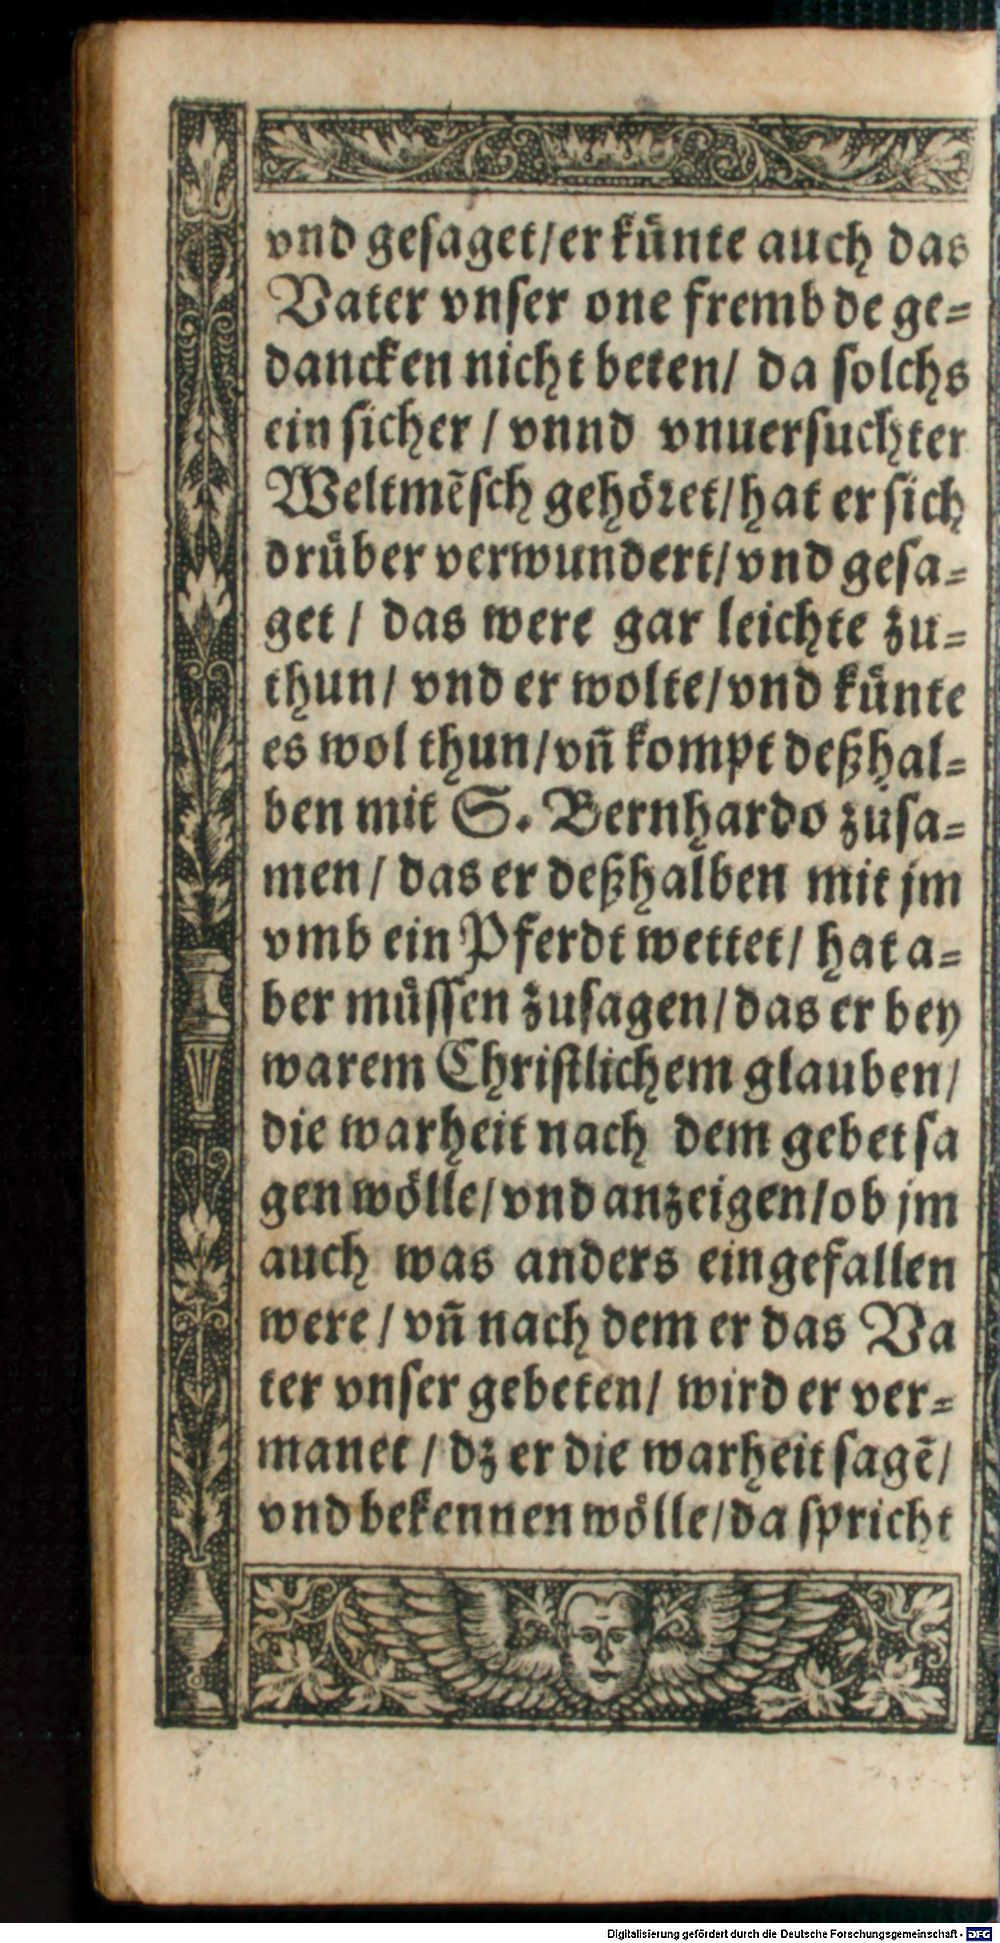 vnd gesaget/er künte auch das
Vater vnser one frembde ge=
dancken nicht beten/ da solchs
ein sicher / vnnd vnuersuchter
Weltmẽsch gehöret/hat er sich
drüber verwundert/vnd gesa=
get / das were gar leichte zu=
thun/ vnd er wolte/vnd künte
es wol thun/vñ kompt deßhal=
ben mit S. Bernhardo zusa=
men / das er deßhalben mit jm
vmb ein Pferdt wettet/ hat a=
ber müssen zusagen/das er bey
warem Christlichem glauben/
die warheit nach dem gebet sa
gen wölle/vnd anzeigen/ob jm
auch was anders eingefallen
were / vñ nach dem er das Va
ter vnser gebeten/ wird er ver=
manet / dz er die warheit sagẽ/
vnd bekennen wölle/da spricht
Digitalisierung gefördert durch die Deutsche Forschungsgemeinschaft - DFG